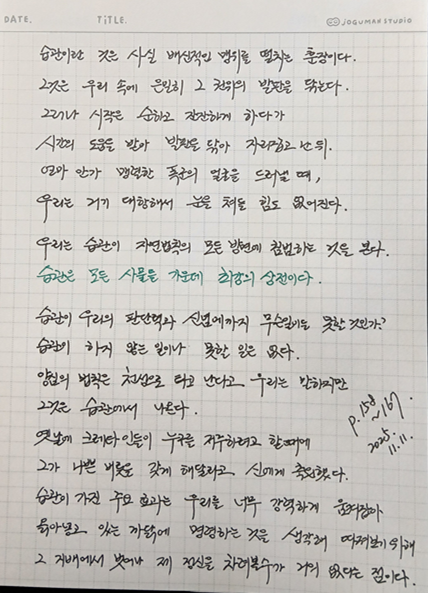 DATE.
TITLE.
JOGUMAN STUDIO
습관이란 것은 사실 배신적인 맹위를 떨치는 훈장이다.
그것은 우리 속에 은밀히 그 권위의 발판을 닦는다.
그러나 시작은 순하고 잔잔하게 하다가
시간의 도움을 받아 발판을 닦아 자리잡고 난 뒤.
얼마 안가 맹렬한 폭군의 얼굴을 드러낼 때,
우리는 거기 대항해서 눈을 쳐들 힘도 없어진다.
우리는 습관이 자연법칙의 모든 방면에 침범하는 것을 본다.
습관은 모든 사물들 가운데 최강의 상전이다.
습관이 우리의 판단력과 신념에까지 무슨일이든 못할 것인가?
습관이 하지 않는 일이나 못할 일은 없다.
양심의 법칙은 천성으로 타고 난다고 우리는 말하지만
그것은 습관에서 나온다.
옛날에 크레타인들이 누구를 저주하려고 할때에
그가 나쁜 버릇을 갖게 해달라고 신에게 축원했다.
습관이 가진 주요 효과는 우리를 너무 강력하게 움켜잡아
옭아넣고 있는 까닭에 명령하는 것을 생각해 따져보기 위해
그 지배에서 벗어나 제 정신을 차려볼수가 거의 없다는 점이다.
p.158
~167.
2025.
11.11.